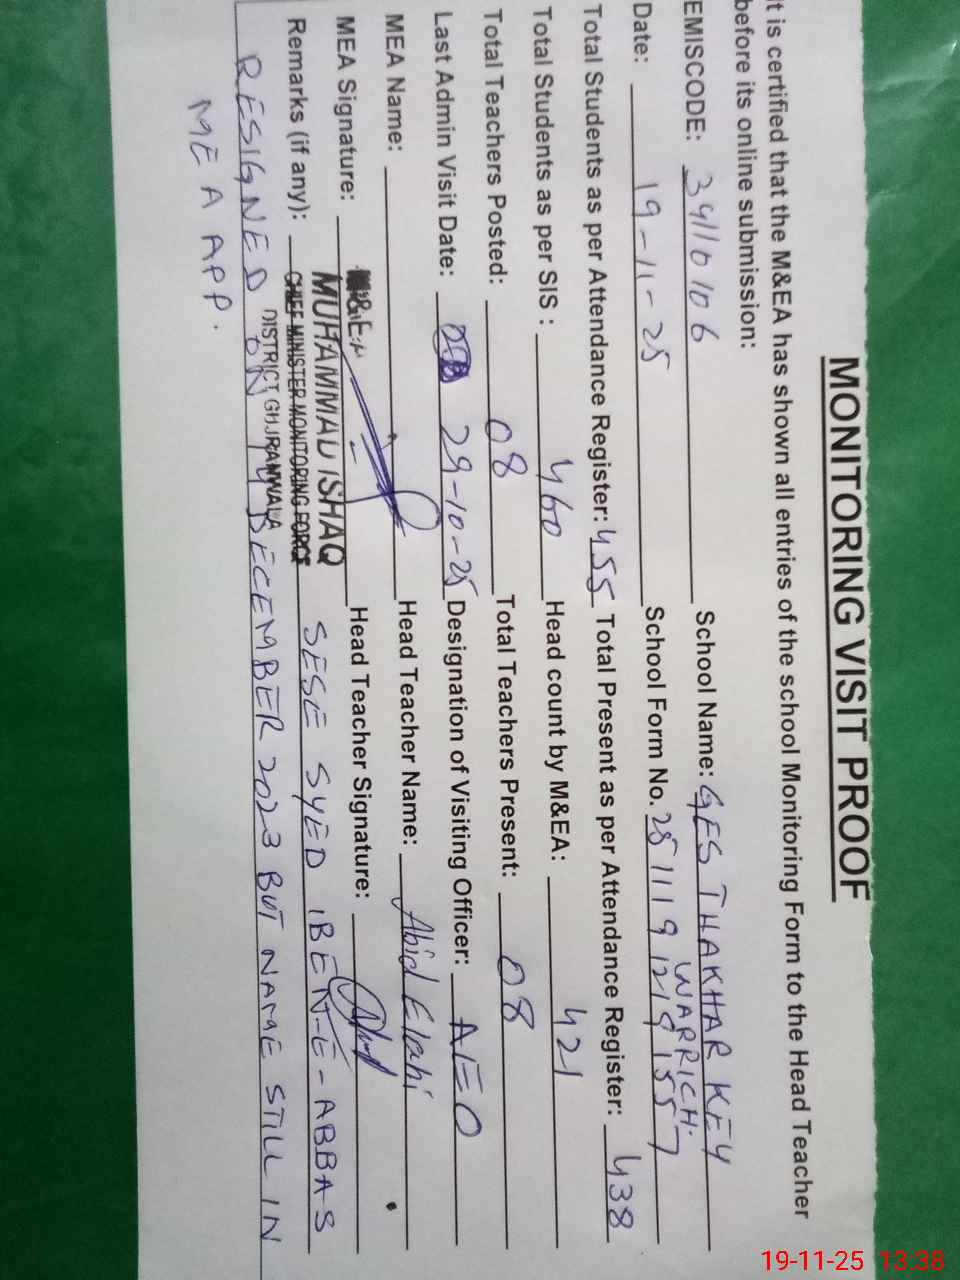 MONITORING VISIT PROOF
It is certified that the M&EA has shown all entries of the school Monitoring Form to the Head Teacher
before its online submission:
EMISCODE: 34110106 School Name: GES THAKHAR KEY
WARRICH.
Date: 19-11-25 School Form No. 251119 1219 1557
Total Students as per Attendance Register: 455 Total Present as per Attendance Register: 438
Total Students as per SIS : 460 Head count by M&EA: 421
Total Teachers Posted: 08 Total Teachers Present: 08
Last Admin Visit Date: 29-10-25 Designation of Visiting Officer: AEO
MEA Name: Head Teacher Name: Abid Elahi
MEA Signature: Head Teacher Signature:
MUHAMMAD ISHAQ
CHIEF MINISTER MONITORING FORCE
DISTRICT GUJRANWALA
Remarks (if any): SESE SYED IBEN-E-ABBAS
RESIGNED ON DECEMBER 2023 BUT NAME STILL IN
MEA APP.
19-11-25 13:38